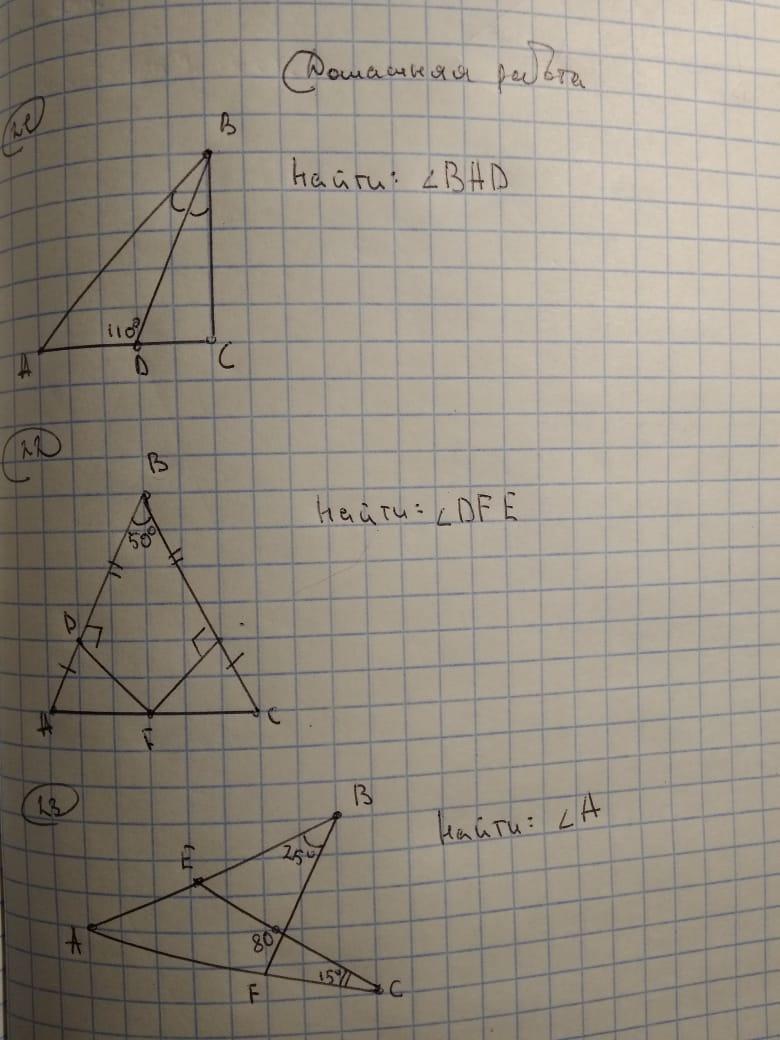 Домашняя работа
21
B
Найти: ∠BAD
110°
A
D
C
22
B
Найти: ∠DFE
50°
D
A
F
C
23
B
Найти: ∠A
25°
E
A
80
15°
F
C